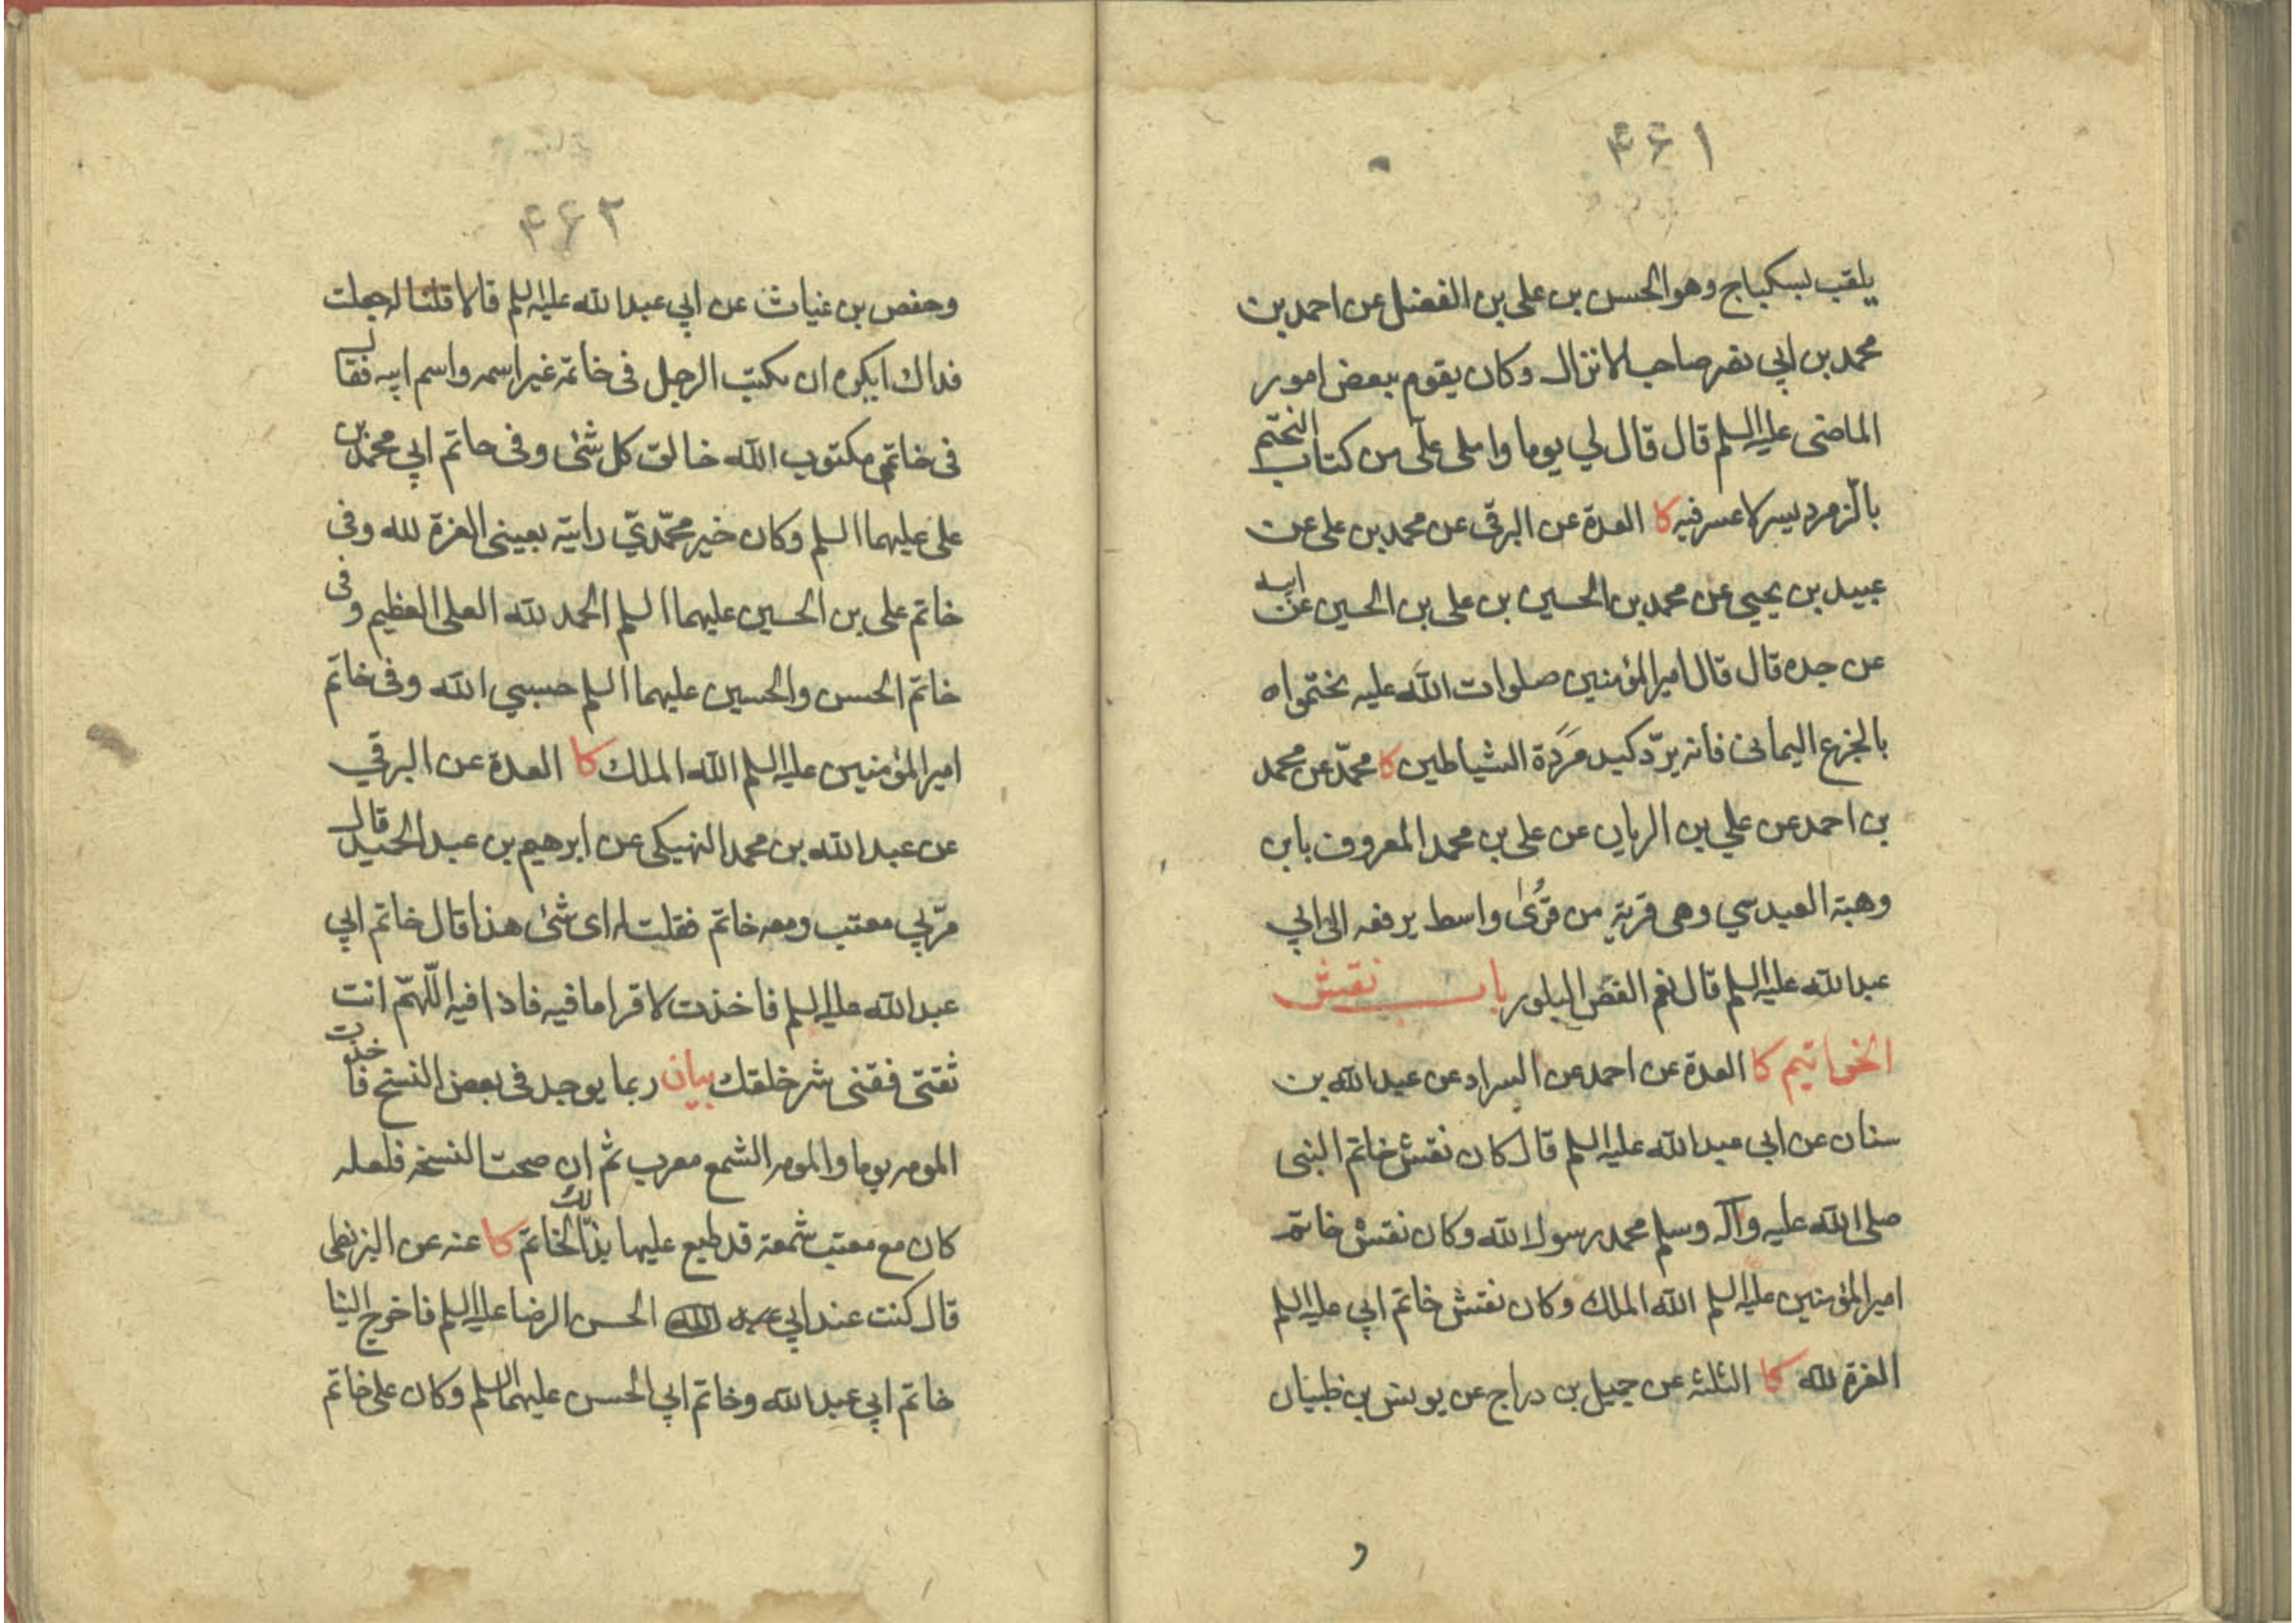 ۴۶۱
يلقب بسكباج وهو الحسن بن علي بن الفضل عن احمد بن
محمد بن ابي نصر صاحب الانزال وكان يقوم ببعض امور
الماضى عليه السلم قال قال لي يوما واملى علّى من كتاب التختم
بالزمرد يسر لا عسر فيه كا العدة عن البرقى عن محمد بن على عن
عبيد بن يحيى عن محمد بن الحسين بن على بن الحسين عن ابيه
عن جده قال قال امير المؤمنين صلوات الله عليه تختموا
بالجزع اليمانى فانه يردّ كيد مَرَدة الشياطين كا محمّد عن محمد
بن احمد عن علي بن الريان عن على بن محمد المعروف بابن
وهبة العبدسي وهى قرية من قُرىٰ واسط يرفعه الى ابي
عبد الله عليه السلم قال نعم الفصّ البلور باب نقش
الخواتيم كا العدة عن احمد عن السراد عن عبد الله بن
سنان عن ابي عبد الله عليه السلم قال كان نقش خاتم النبى
صلى الله عليه وآله وسلم محمد رسول الله وكان نقش خاتم
امير المؤمنين عليه السلم الله الملك وكان نقش خاتم ابي عليه السلم
العزة لله كا الثلثة عن جميل بن دراج عن يونس بن ظبيان
و
۴۶۲
وحفص بن غياث عن ابي عبد الله عليه السلم قالا قلنا له جعلت
فداك ايكره ان يكتب الرجل فى خاتمه غير اسمه واسم ابيه فقال
فى خاتمى مكتوب الله خالق كل شئ وفى خاتم ابي محمد بن
على عليهما السلم وكان خير محمّديّ رايته بعينى العزة لله وفى
خاتم على بن الحسين عليهما السلم الحمد لله العلى العظيم وفى
خاتم الحسن والحسين عليهما السلم حسبي الله وفى خاتم
امير المؤمنين عليه السلم الله الملك كا العدة عن البرقي
عن عبد الله بن محمد النهيكى عن ابرهيم بن عبد الحميد قال
مرّ بي معتب ومعه خاتم فقلت له اى شئ هذا قال خاتم ابي
عبد الله عليه السلم فاخذت لاقرا ما فيه فاذا فيه اللّهمّ انت
ثقتى فقنى شر خلقك بيان ربما يوجد فى بعض النسخ فاخذت
الموم يوما والموم الشمع معرب ثم ان صحت النسخة فلعله
كان مع معتب شمعة قد طبع عليها بذلك الخاتم كا عنه عن البزنطى
قال كنت عند ابي الحسن الرضا عليه السلم فاخرج الينا
خاتم ابي عبد الله وخاتم ابي الحسن عليهما السلم وكان على خاتم